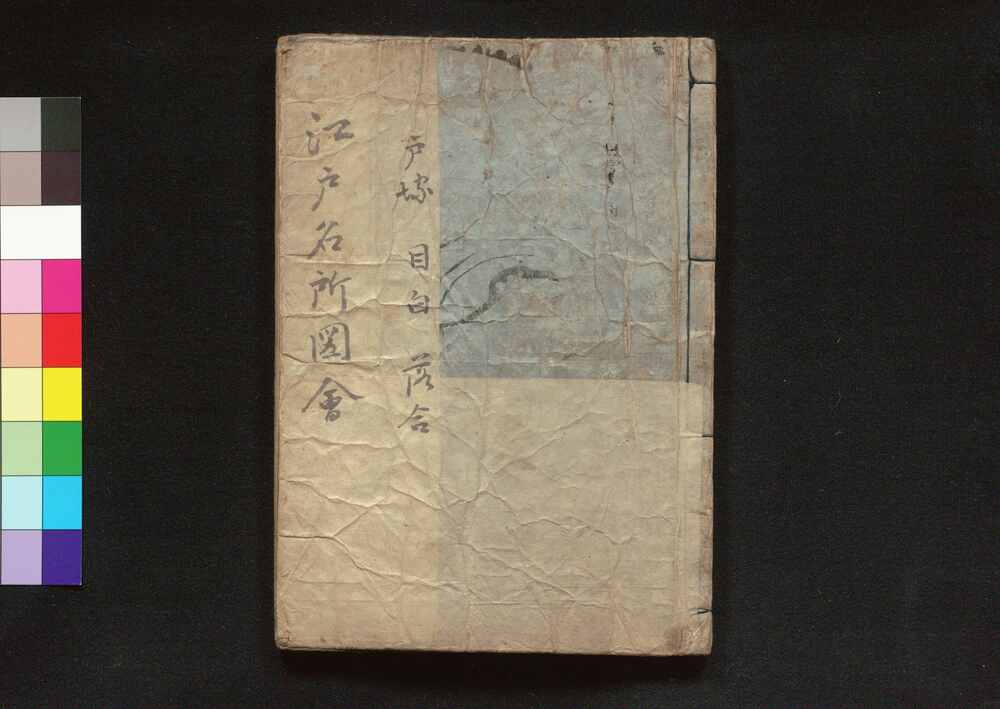 戸塚 目白 落合
江戸名所圖會